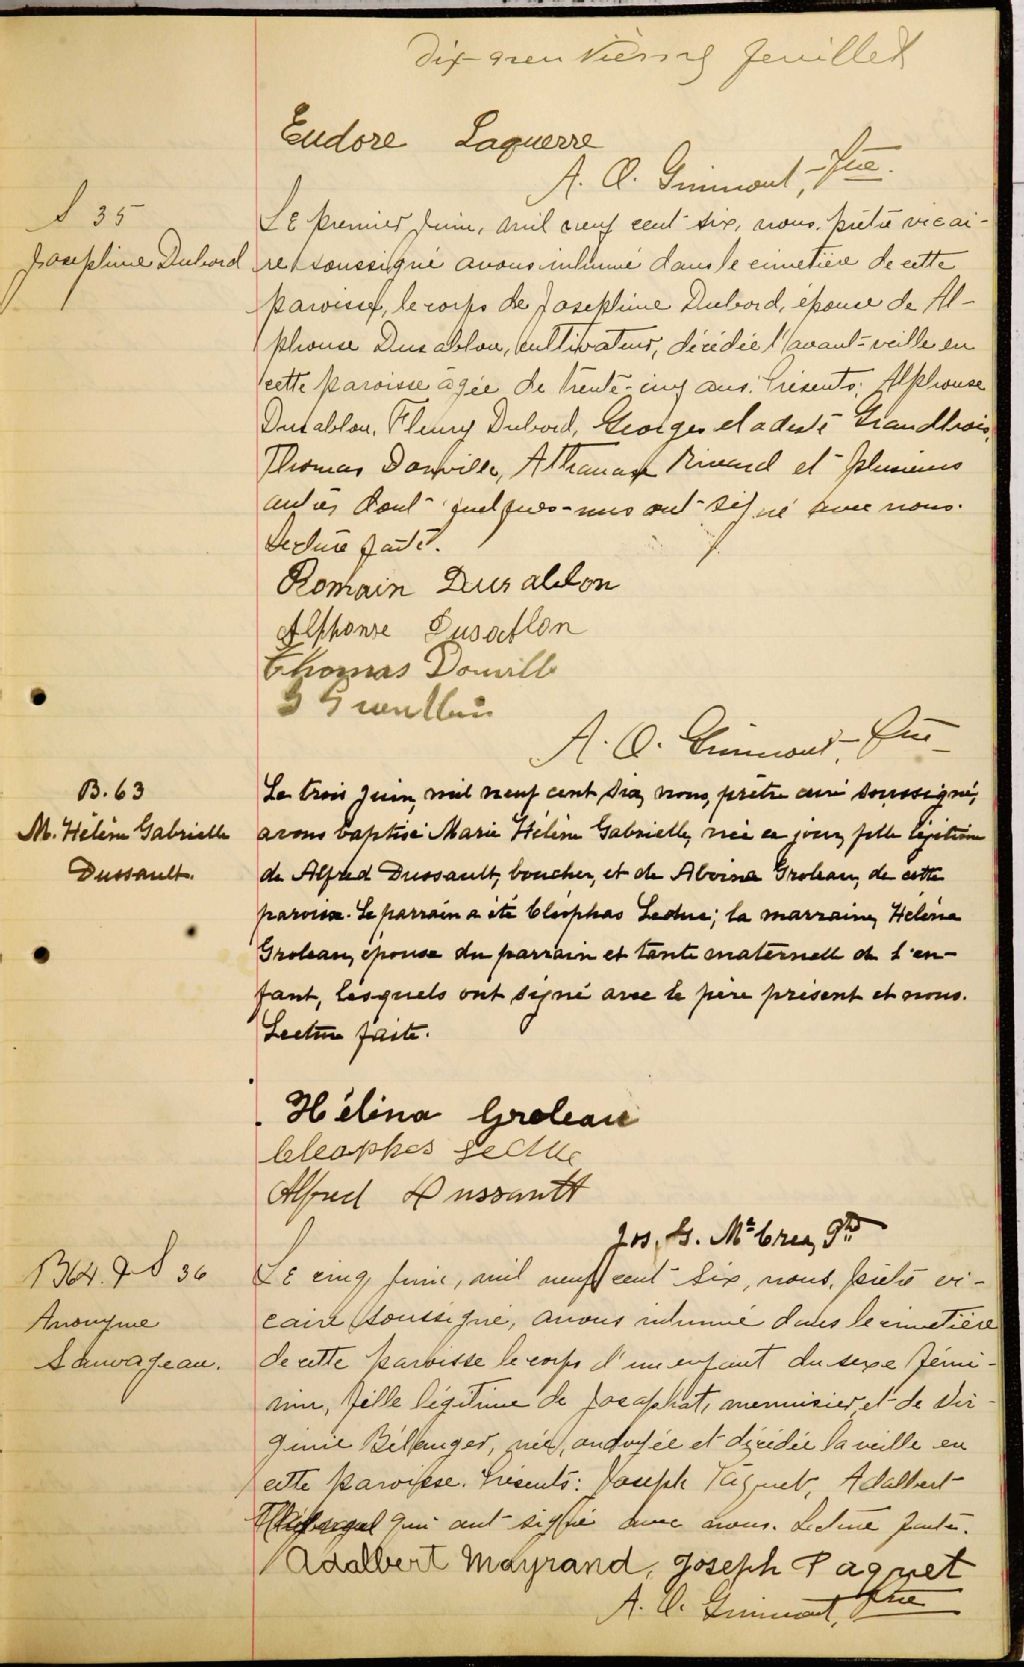 Dix-neuvième feuillet
Eudore Laquerre
A. O. Guimont, Ptre.
S 35
Josephine Dubord
Le premier Juin, mil neuf cent six, nous, prêtre vicai-
re soussigné avons inhumé dans le cimetière de cette
paroisse, le corps de Josephine Dubord, épouse de Al-
phonse Dusablon, cultivateur, décédée l'avant-veille en
cette paroisse âgée de trente-cinq ans. Présents: Alphonse
Dusablon, Fleury Dubord, Georges Grandbois,
Thomas Douville, Athanase Rivard et plusieurs
autres dont quelques-uns ont signé avec nous.
Lecture faite.
Romain Dusablon
Alphonse Dusablon
Thomas Douville
A. O. Guimont, Ptre
B. 63
M. Hélène Gabrielle
Dussault.
Le trois Juin, mil neuf cent six, nous, prêtre curé soussigné,
avons baptisé Marie Hélène Gabrielle, née ce jour, fille légitime
de Alfred Dussault, boucher, et de Alvina Groleau, de cette
paroisse. Le parrain a été Cléophas Leduc; la marraine, Héléna
Groleau, épouse du parrain et tante maternelle de l'en-
fant, lesquels ont signé avec le père présent et nous.
Lecture faite.
Héléna Groleau
Cleophas Leduc
Alfred Dussault
Jos. G. McCrea, Ptre
B64. & S 36
Anonyme
Sauvageau.
Le cinq Juin, mil neuf cent six, nous, prêtre vi-
caire soussigné, avons inhumé dans le cimetière
de cette paroisse le corps d'un enfant du sexe fémi-
nin, fille légitime de Josaphat, menuisier, et de Vir-
ginie Bélanger, née, ondoyée et décédée la veille en
cette paroisse. Présents: Joseph Paquet, Adalbert
qui ont signé avec nous. Lecture faite.
Adalbert Mayrand, Joseph Paquet
A. O. Guimont, Ptre